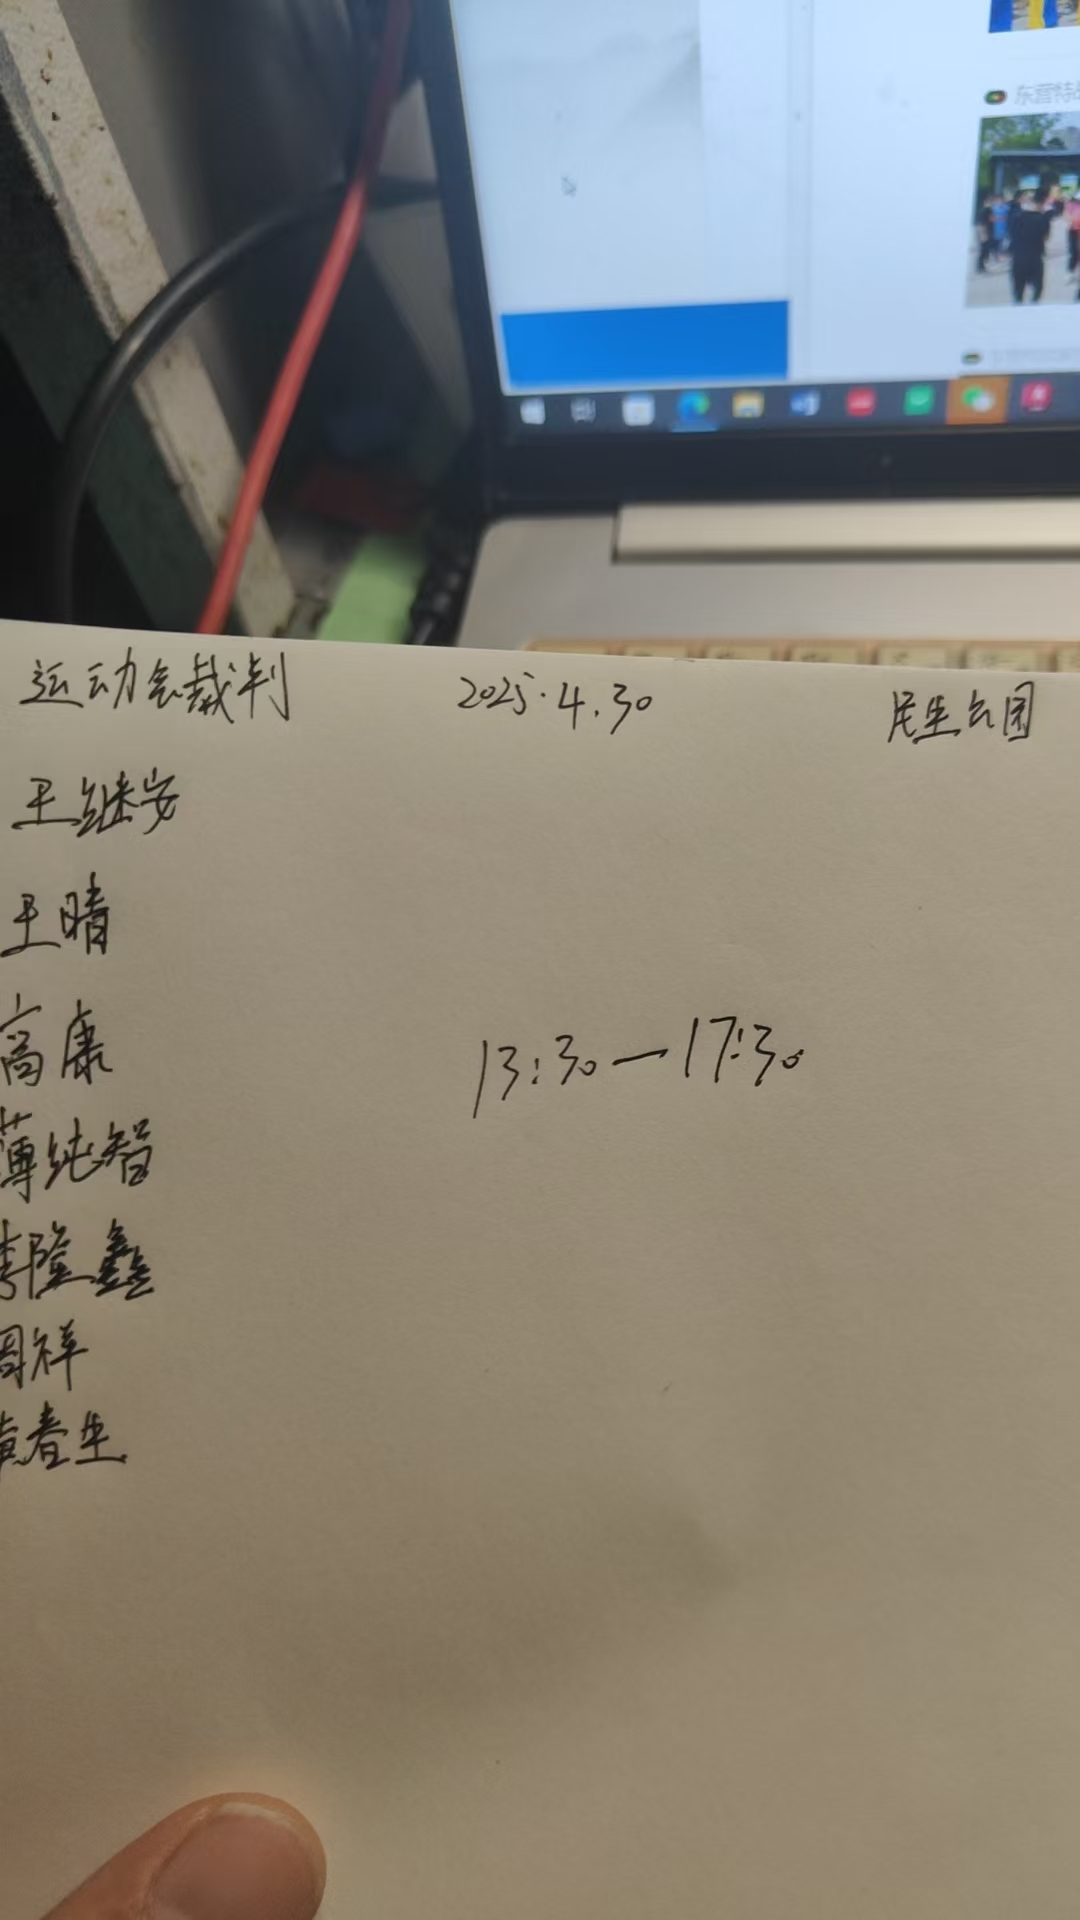 东营特战
运动会裁判 2025.4.30 民生公园
王继安
王晴
高康
13:30—17:30
薄纯智
李隆鑫
周祥
黄春生